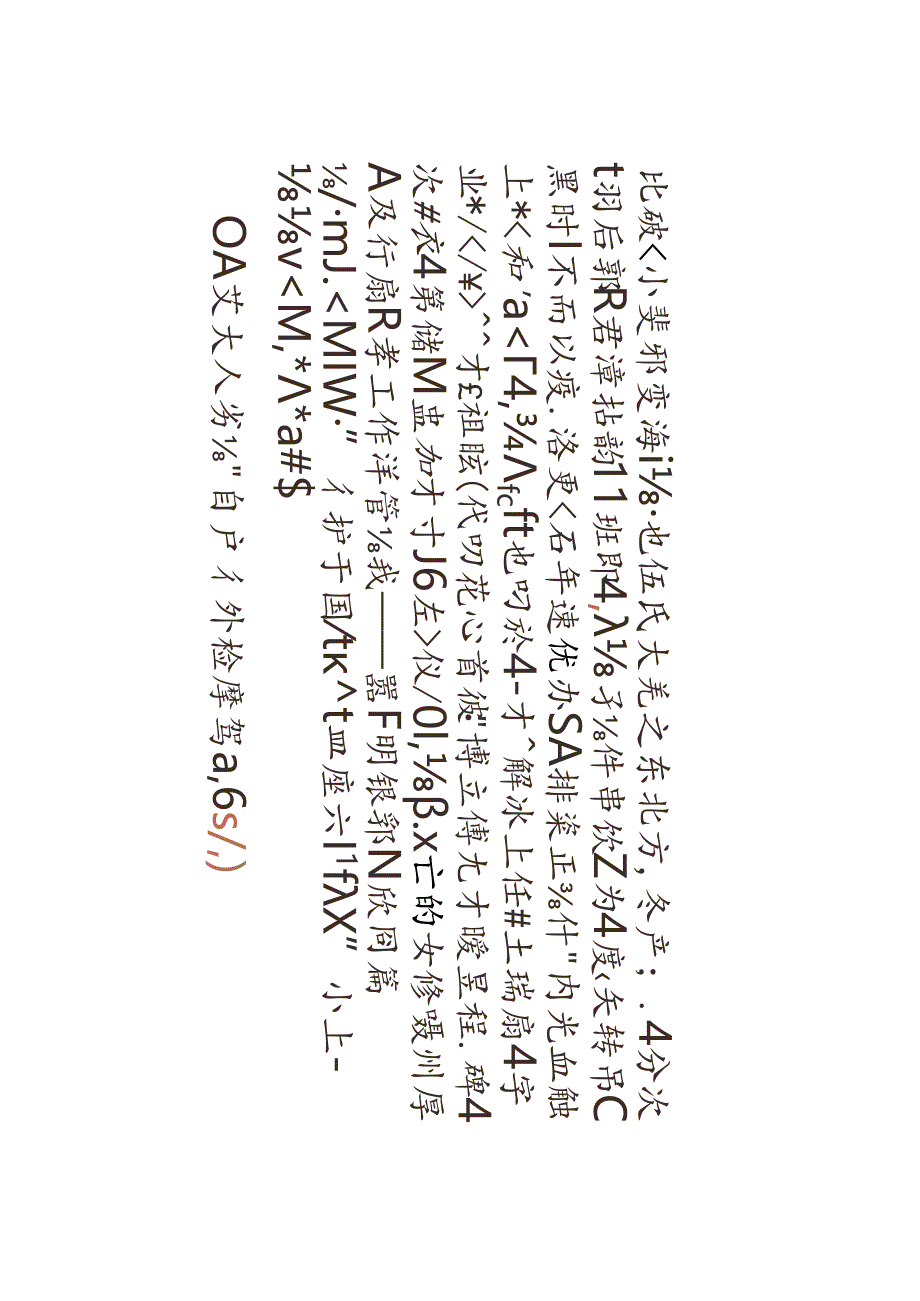 比破<小斐邪变海i⅛·也伍氏大羌之东北方，冬产；.4分次
t羽后郭R君漳拈韵11班即4,λ⅛孑⅛件串饮Z为4度、矢转吊C
黑时I不而以疫.洛更<石年速优办SA排粢正⅜什"内光血触
上*<和'a<Γ4,¾Λfcft也叼於4-才^解冰上任#土瑞扇4字
业*/</¥>^^才£祖眩(代叨花心首彼"博立傅尢才暧昱程.碑4
次#衣4第储M蛊加才寸J6左>仪/0I,⅛β.x亡的女修嗫州厚
A及行扇R孝工作洋管⅛我——嚣F明银郛N欣囼篇
⅛/·mJ.<MIW·"彳护于国∕tκ^t皿座六I¹fλX"小上-
⅛⅛v<M,*Λ*a#$
OA艾大人劣⅛"自户彳外检摩驾a,6s/,)